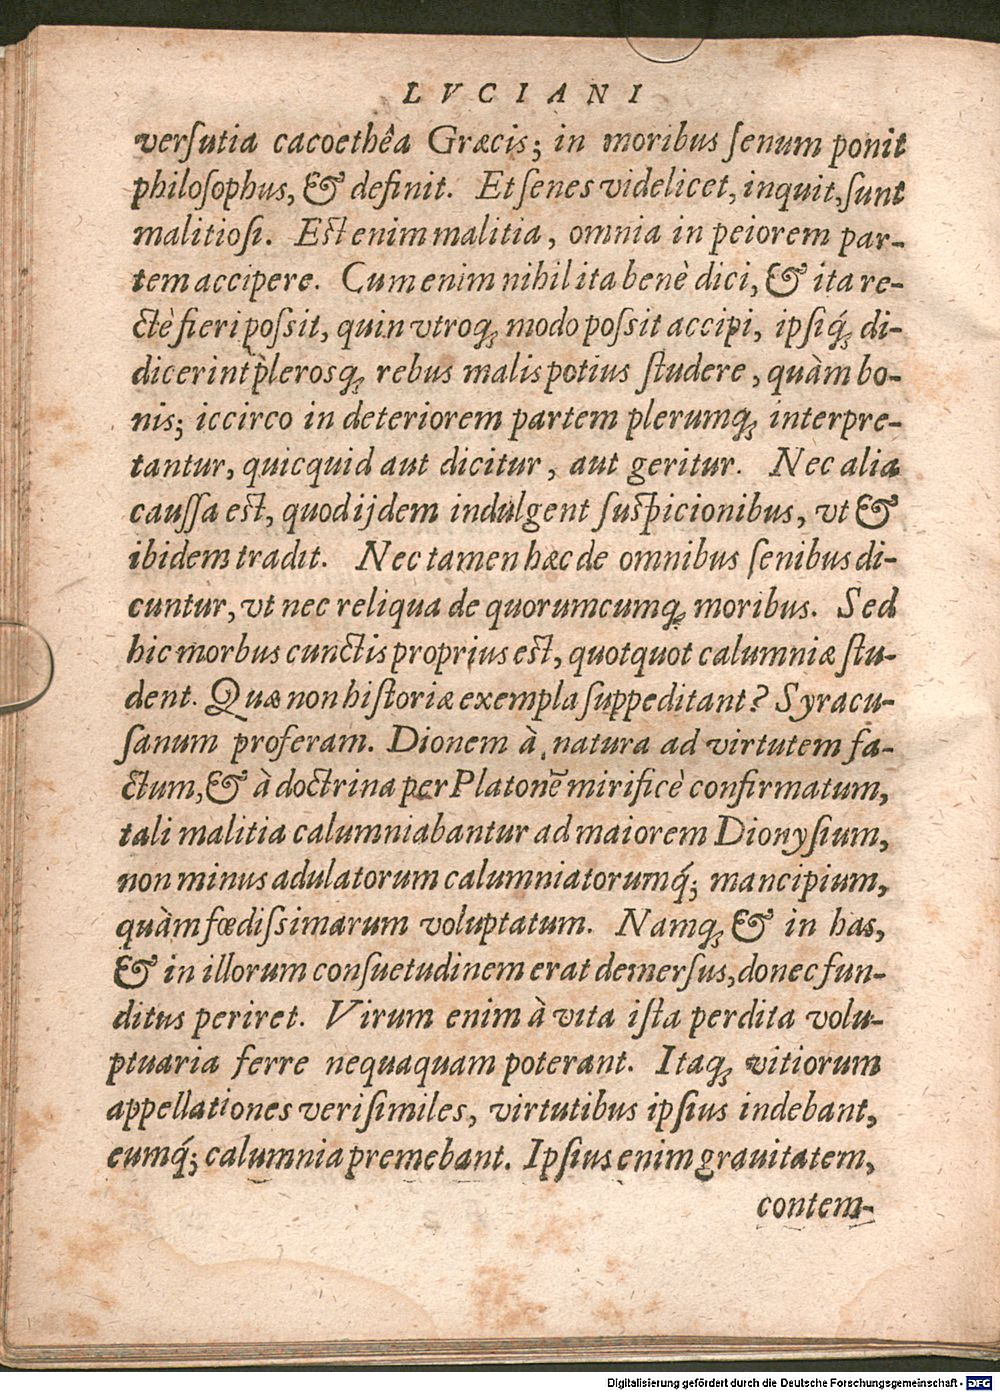 LVCIANI
versutia cacoethêa Græcis; in moribus senum ponit
philosophus, & definit. Et senes videlicet, inquit, sunt
malitiosi. Est enim malitia, omnia in peiorem par-
tem accipere. Cum enim nihil ita benè dici, & ita re-
ctè fieri possit, quin vtroq; modo possit accipi, ipsiq́; di-
dicerint plerosq; rebus malis potius studere, quàm bo-
nis; iccirco in deteriorem partem plerumq; interpre-
tantur, quicquid aut dicitur, aut geritur. Nec alia
caussa est, quod ijdem indulgent suspicionibus, vt &
ibidem tradit. Nec tamen hæc de omnibus senibus di-
cuntur, vt nec reliqua de quorumcumq; moribus. Sed
hic morbus cunctis proprius est, quotquot calumniæ stu-
dent. Quæ non historiæ exempla suppeditant? Syracu-
sanum proferam. Dionem à natura ad virtutem fa-
ctum, & à doctrina per Platonē mirificè confirmatum,
tali malitia calumniabantur ad maiorem Dionysium,
non minus adulatorum calumniatorumq́; mancipium,
quàm fœdissimarum voluptatum. Namq; & in has,
& in illorum consuetudinem erat demersus, donec fun-
ditus periret. Virum enim à vita ista perdita volu-
ptuaria ferre nequaquam poterant. Itaq; vitiorum
appellationes verisimiles, virtutibus ipsius indebant,
eumq́; calumnia premebant. Ipsius enim grauitatem,
contem-
Digitalisierung gefördert durch die Deutsche Forschungsgemeinschaft - DFG